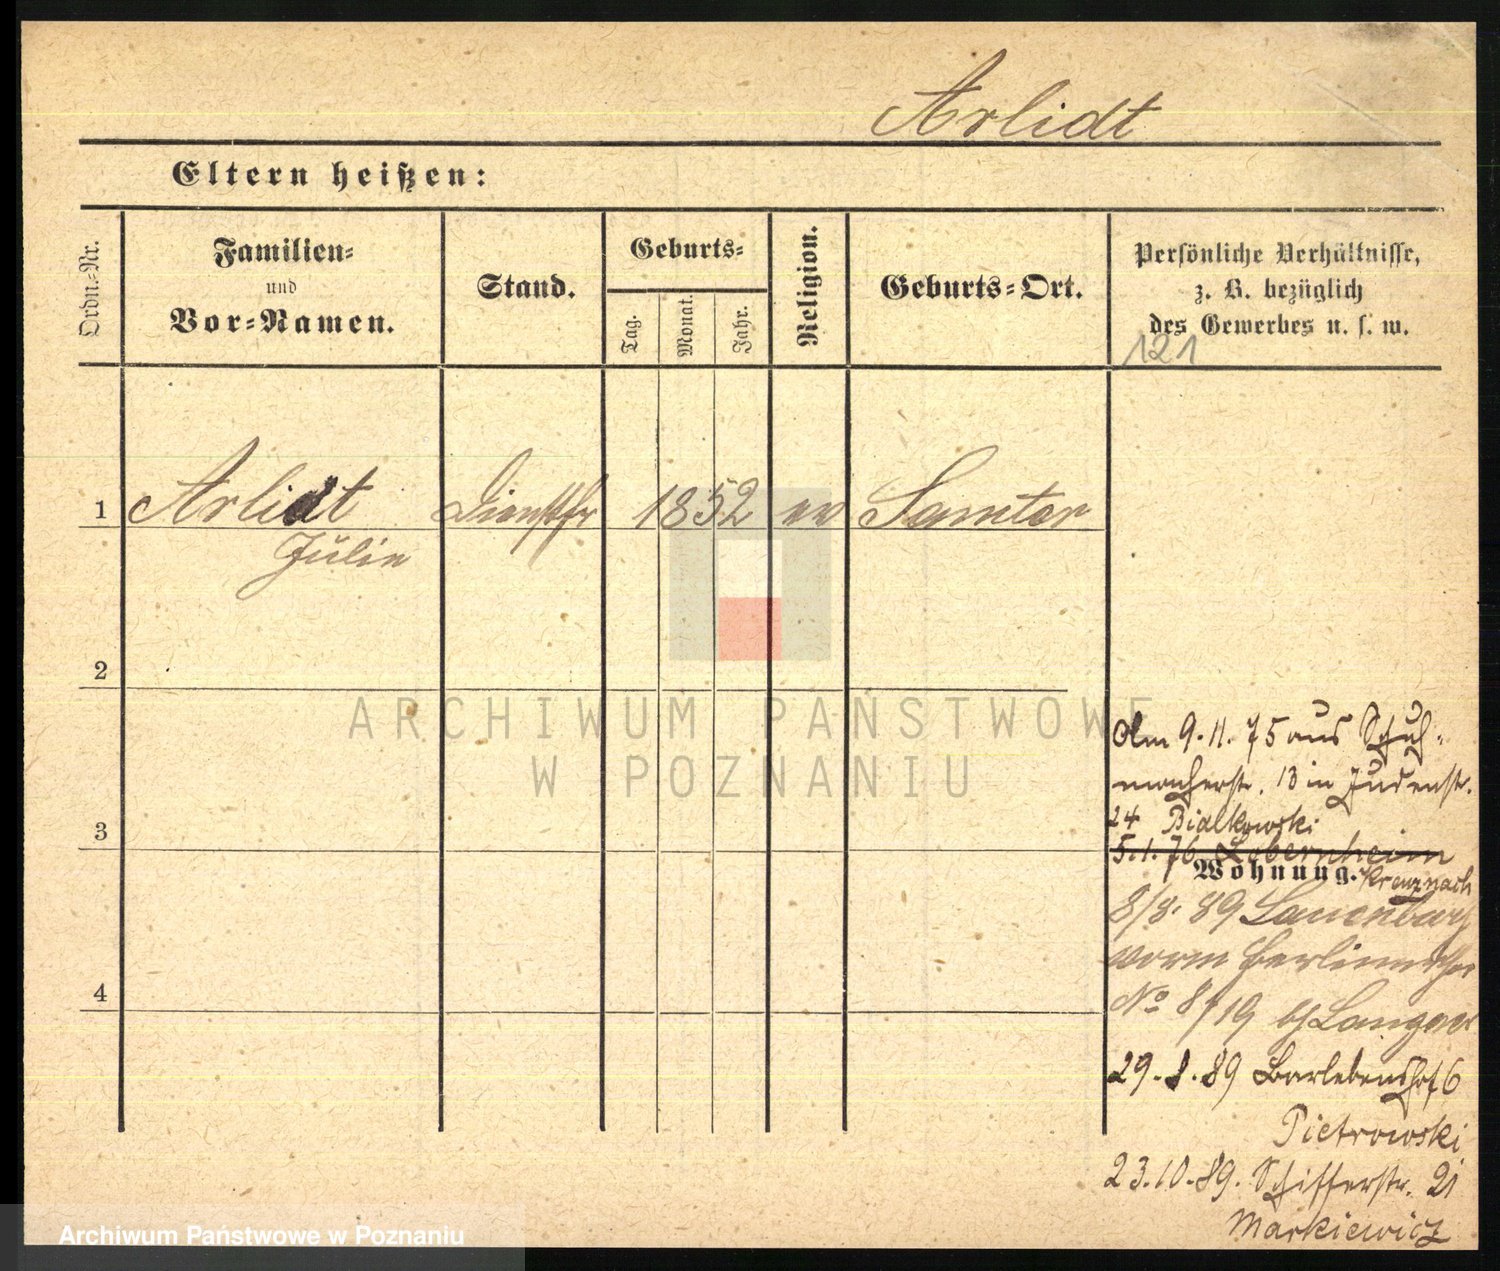 Arlidt
Eltern heißen:
Ordn.-Nr.
Familien-
und
Vor-Namen.
Stand.
Geburts-
Tag.
Monat.
Jahr.
Religion.
Geburts-Ort.
Persönliche Verhältnisse,
z. B. bezüglich
des Gewerbes u. s. w.
121
1 Arlidt Dienstfr 1852 ev Samter
Julie
2
ARCHIWUM PAŃSTWOWE
W POZNANIU
Am 9.11.75 aus Schuh-
macherstr. 13 in Judenstr.
24 Bialkowski
3
5.1.76
Wohnung. Kreuznach
8/8. 89 Lauenburg
vorm Berlinerthor
4
No 8/19 b/ Langner
29.8.89 Barlebenshof 6
Pietrowski
23.10.89. Schifferstr. 21
Markiewicz
Archiwum Państwowe w Poznaniu